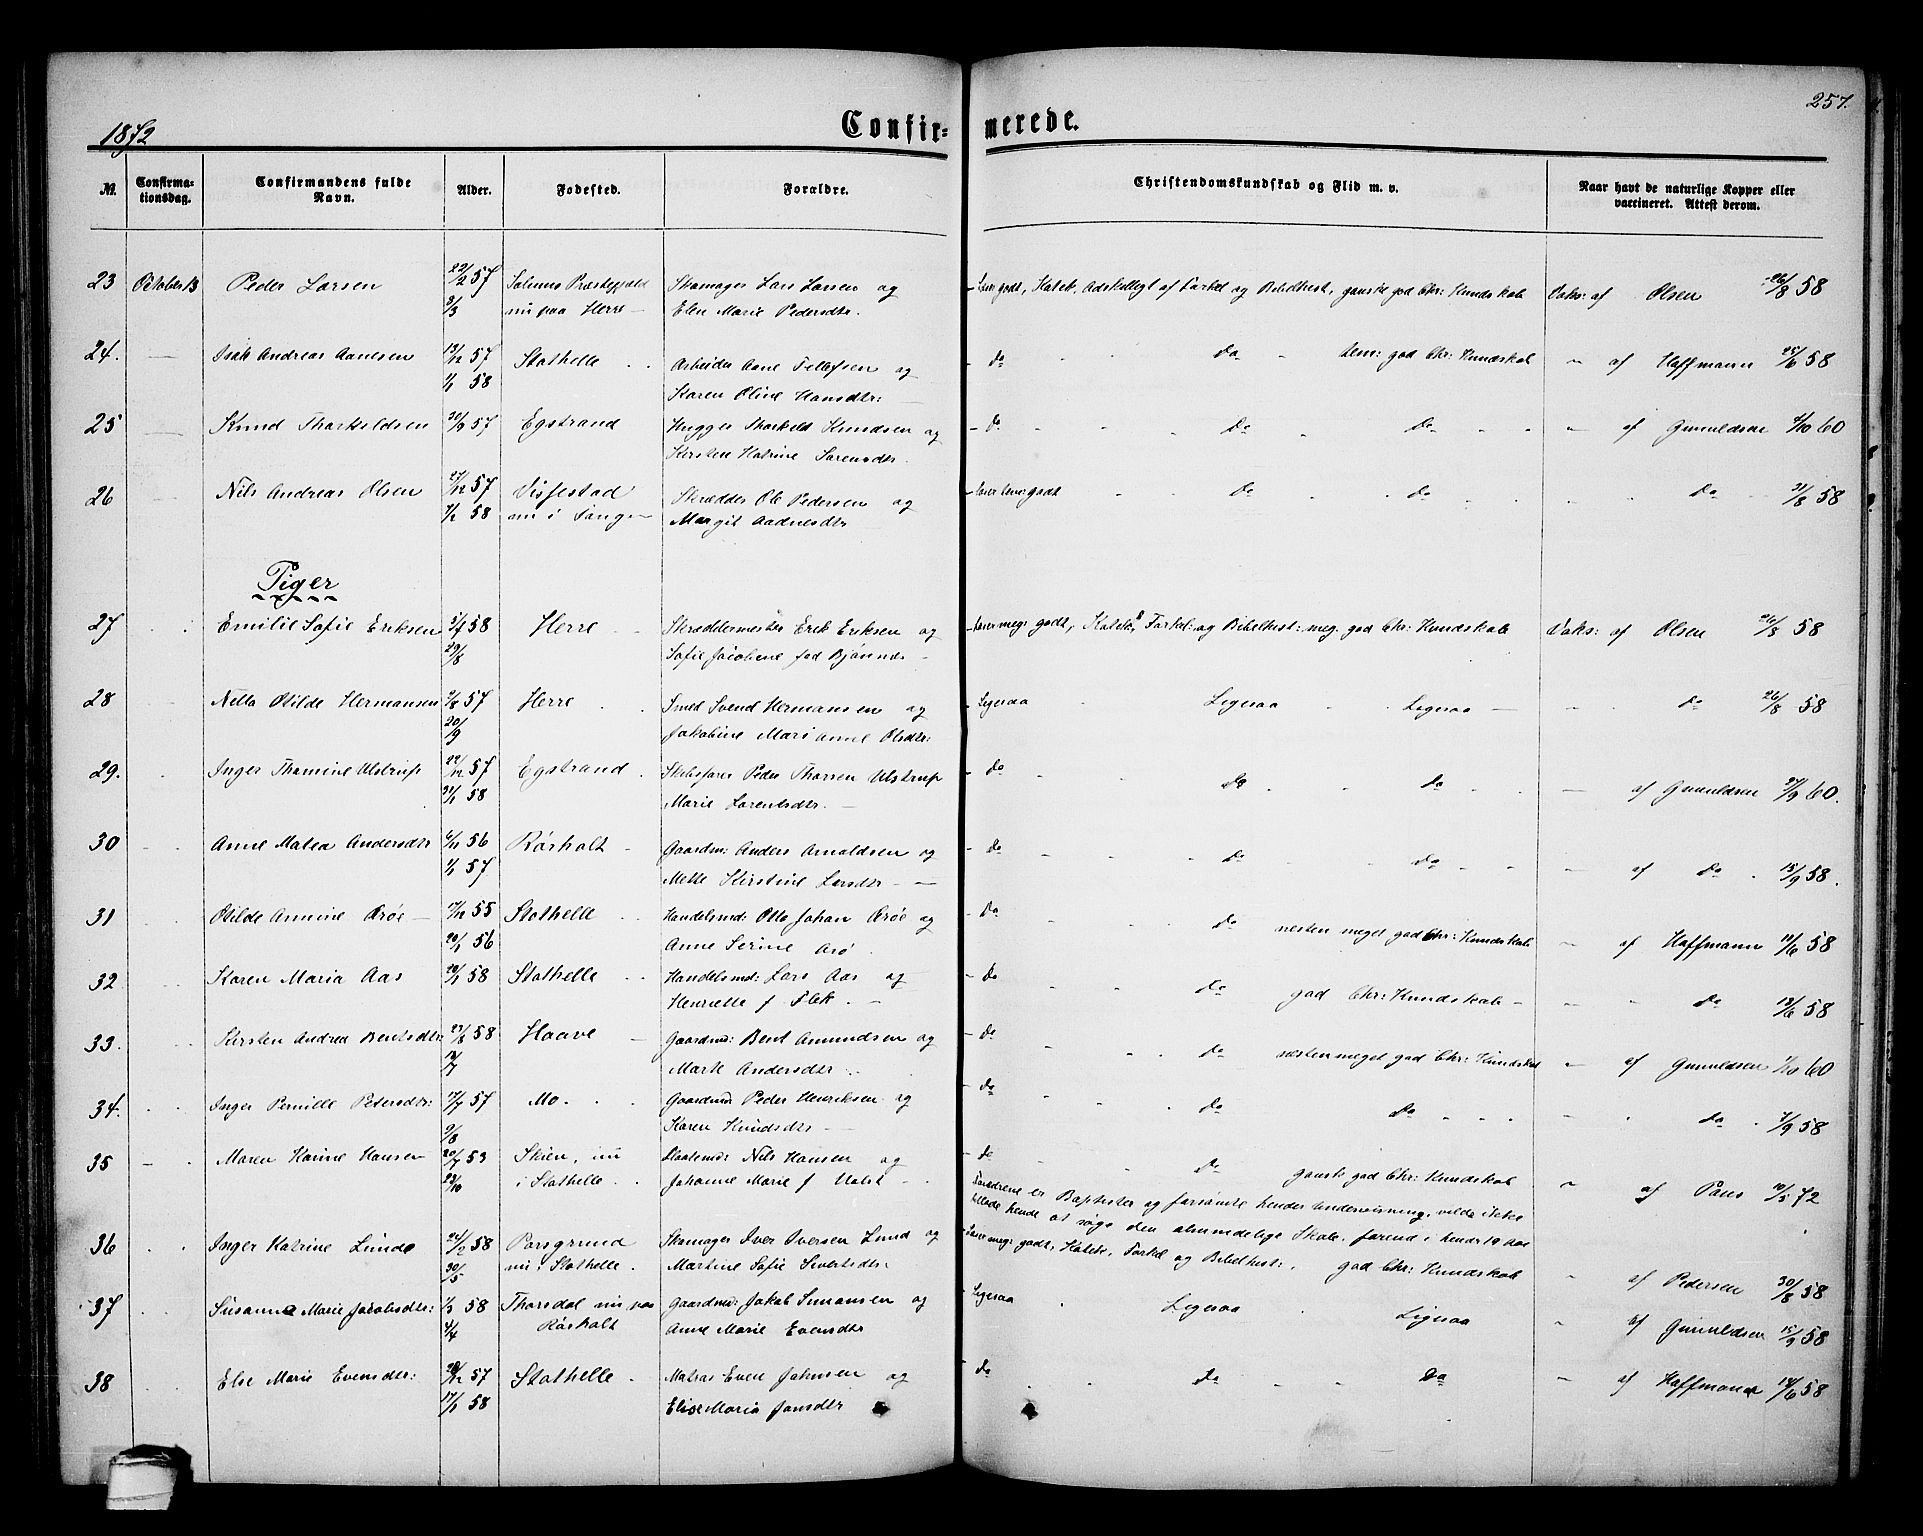 1872
Confir-
merede.
257.
№.
Confirma-
tionsdag.
Confirmandens fulde
Navn.
Alder.
Fødested.
Forældre.
Christendomskundskab og Flid m. v.
Naar havt de naturlige Kopper eller
vaccineret. Attest derom.
23 October 13 Peder Larsen 22/2 57 Solums Præstegjeld Skomager Lars Larsen og Læser godt, Katek. Adskilligt af Forkl og Bibelhist, ganske god Chr: Kundskab Vaks: af Olsen 26/8 58
2/3 nu paa Herre Elen Marie Pedersdtr.
24. Isak Andreas Aanesen 13/12 57 Stathelle Arbeider Aane Tellefsen og do do tem: god Chr: Kundskab af Hoffmann 25/6 58
1/1 58 Karen Oline Hansdtr:
25 Knud Tharkeldsen 20/9 57 Egstrand Hugger Tharkeld Knudsen og do do do af Gunuldsen 4/10 60
Kirsten Katrine Sørensdtr.
26 Nils Andreas Olsen 27/12 57 Vissestad Skrædder Ole Pedersen og læser tem: godt do do do 31/8 58
7/2 58 nu i Tangen Margit Aadnesdtr
Piger
27 Emilie Sofie Eriksen 3/7 58 Herre Skræddermester Erik Eriksen og læser meg: godt, Katek, Forkl: og Bibelhist: meg. god Chr: Kundskab Vaks: af Olsen 26/8 58
29/8 Sofie Jacobine fød Bjønnes
28 Netta Otilde Hermansen 2/8 57 Herre Smed Svend Hermansen og Ligesaa Ligesaa Ligesaa do 26/8 58
20/9 Jakobine Mari Anne Olsdtr:
29. Inger Thomine Ulstrup 22/12 57 Egstrand Skibsfører Peder Thorsen Ulstrup do do do af Gunuldsen 27/9 60.
31/1 58 Marie Lorentsdtr.
30 Anne Matea Andersdtr 6/11 56 Rørholt Gaardm: Anders Arnoldsen og do do do af do 15/9 58.
1/1 57 Mette Kirstine Larsdtr
31 Otilde Annine Arøe 7/12 55 Stathelle Handelsmd: Otto Johan Arøe og do do nesten meget god Chr: Kundskab af Hoffmann 18/6 58
20/1 56 Anne Serine Arø
32 Karen Maria Aas 20/1 58 Stathelle Handelsmd: Lars Aas og do do god Chr: Kundskab do 13/6 58
Henriette f Flek.
33. Kirsten Andrea Bentsdtr: 23/8 58 Haave Gaardmd: Bent Amundsen og do do næsten meget god Chr: Kundskab af Gunuldsen 1/10 60
Marte Andersdtr
34. Inger Pernille Petersdtr: 17/7 57 Mo. Gaardmd Peder Henriksen og do do do do 7/9 58
9/8 Karen Knudsdtr
35 Maren Karine Hansen 20/7 53 Skien, nu Nils Hansen og do do ganske god Chr: Kundskab af Paus 72
23/10 i Stathelle. Johanne Marie f
Forældrene er Baptister og forsømte hendes Undervisning, vilde ikke
tillade hende at søge den almindelige Skole, førend i hendes 19 Aar
36 Inger Katrine Lunde 24/2 58 Porsgrund Skomager Iver Iversen Lund og Læser meg: godt, Katek, Forkl og Bibelhist:, god Chr: Kundskab af Pedersen 30/8 58
30/5 nu i Stathelle. Martine Sofie Sivertsdtr:
37 Susanna Marie Jacobsdtr: 1/3 58 Thorsdal nu paa Gaardmd: Jakob Simonsen og Ligesaa Ligesaa Ligesaa af Gunuldsen 15/9 58
4/4 Rørholt Anne Marie Evensdtr
38 Else Marie Evensdtr: 28/12 57 Stathelle Matros Even Johnsen og do do do af Hoffmann 14/6 58
17/1 58 Elise Maria Jonsdtr